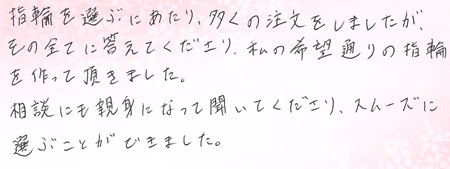 指輪を選ぶにあたり、多くの注文をしましたが、
その全てに答えてくださり、私の希望通りの指輪
を作って頂きました。
相談にも親身になって聞いてくださり、スムーズに
選ぶことができました。